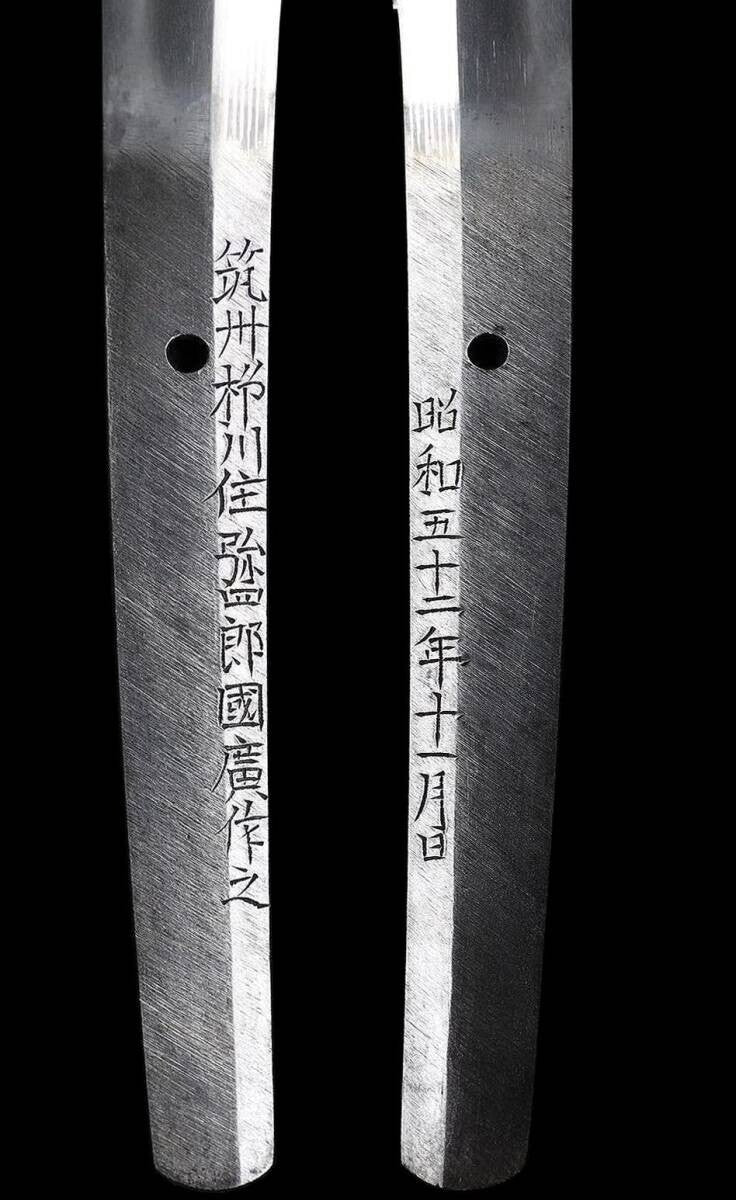 筑州栁川住弥四郎國廣作之
昭和五十二年十一月日